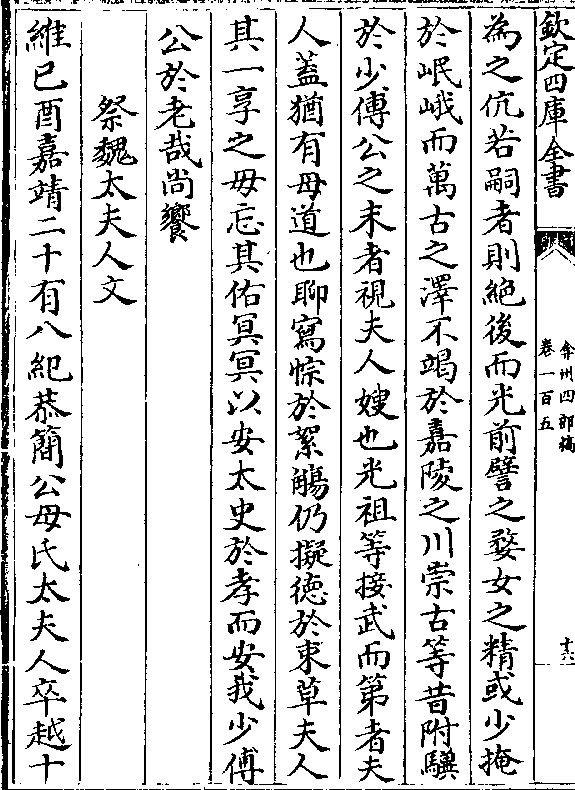 欽定四庫全書
弇州四部稿
卷一百五
十六
為之伉若嗣者則絶後而光前譬之婺女之精或少掩
於岷峨而萬古之澤不竭於嘉陵之川崇古等昔附驥
於少傅公之末者視夫人嫂也光祖等接武而第者夫
人蓋猶有母道也聊寫悰於絮觴仍擬徳於束草夫人
其一享之毋忘其佑冥冥以安太史於孝而安我少傅
公於老哉尚饗
祭魏太夫人文
維已酉嘉靖二十有八紀恭簡公母氏太夫人卒越十